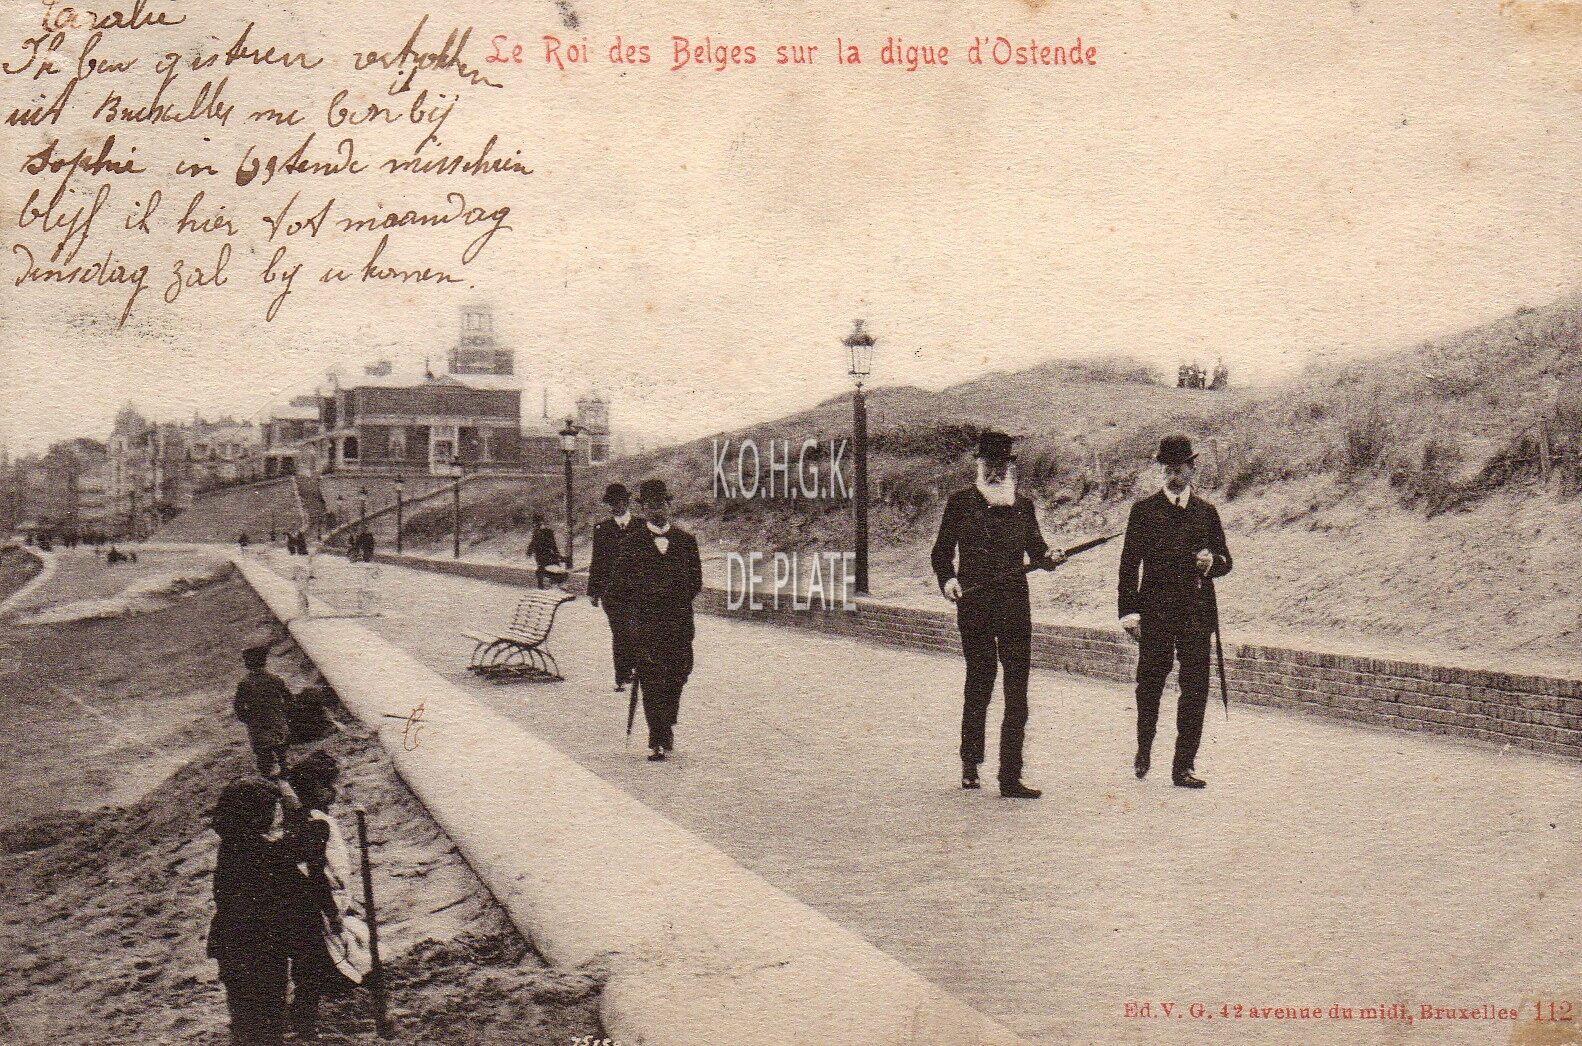 Ik ben gisteren vertrokken
uit Bruxelles nu ben bij
Sophie in Ostende misschien
blijf ik hier tot maandag
dinsdag zal bij u komen.
Le Roi des Belges sur la digue d'Ostende
K.O.H.G.K.
DE PLATE
Ed. V. G. 42 avenue du midi, Bruxelles 112